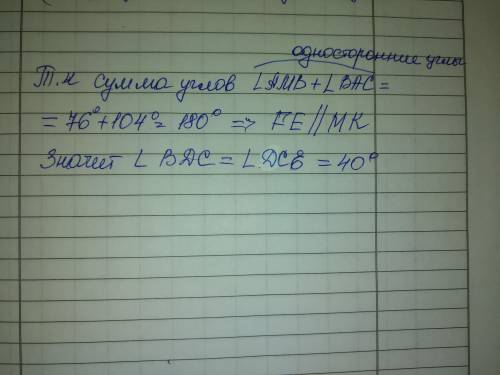 односторонние углы
Т.к сумма углов ∠AMB + ∠BAC =
= 76° + 104° = 180° => FE // MK
Значит ∠ BDC = ∠DCE = 40°